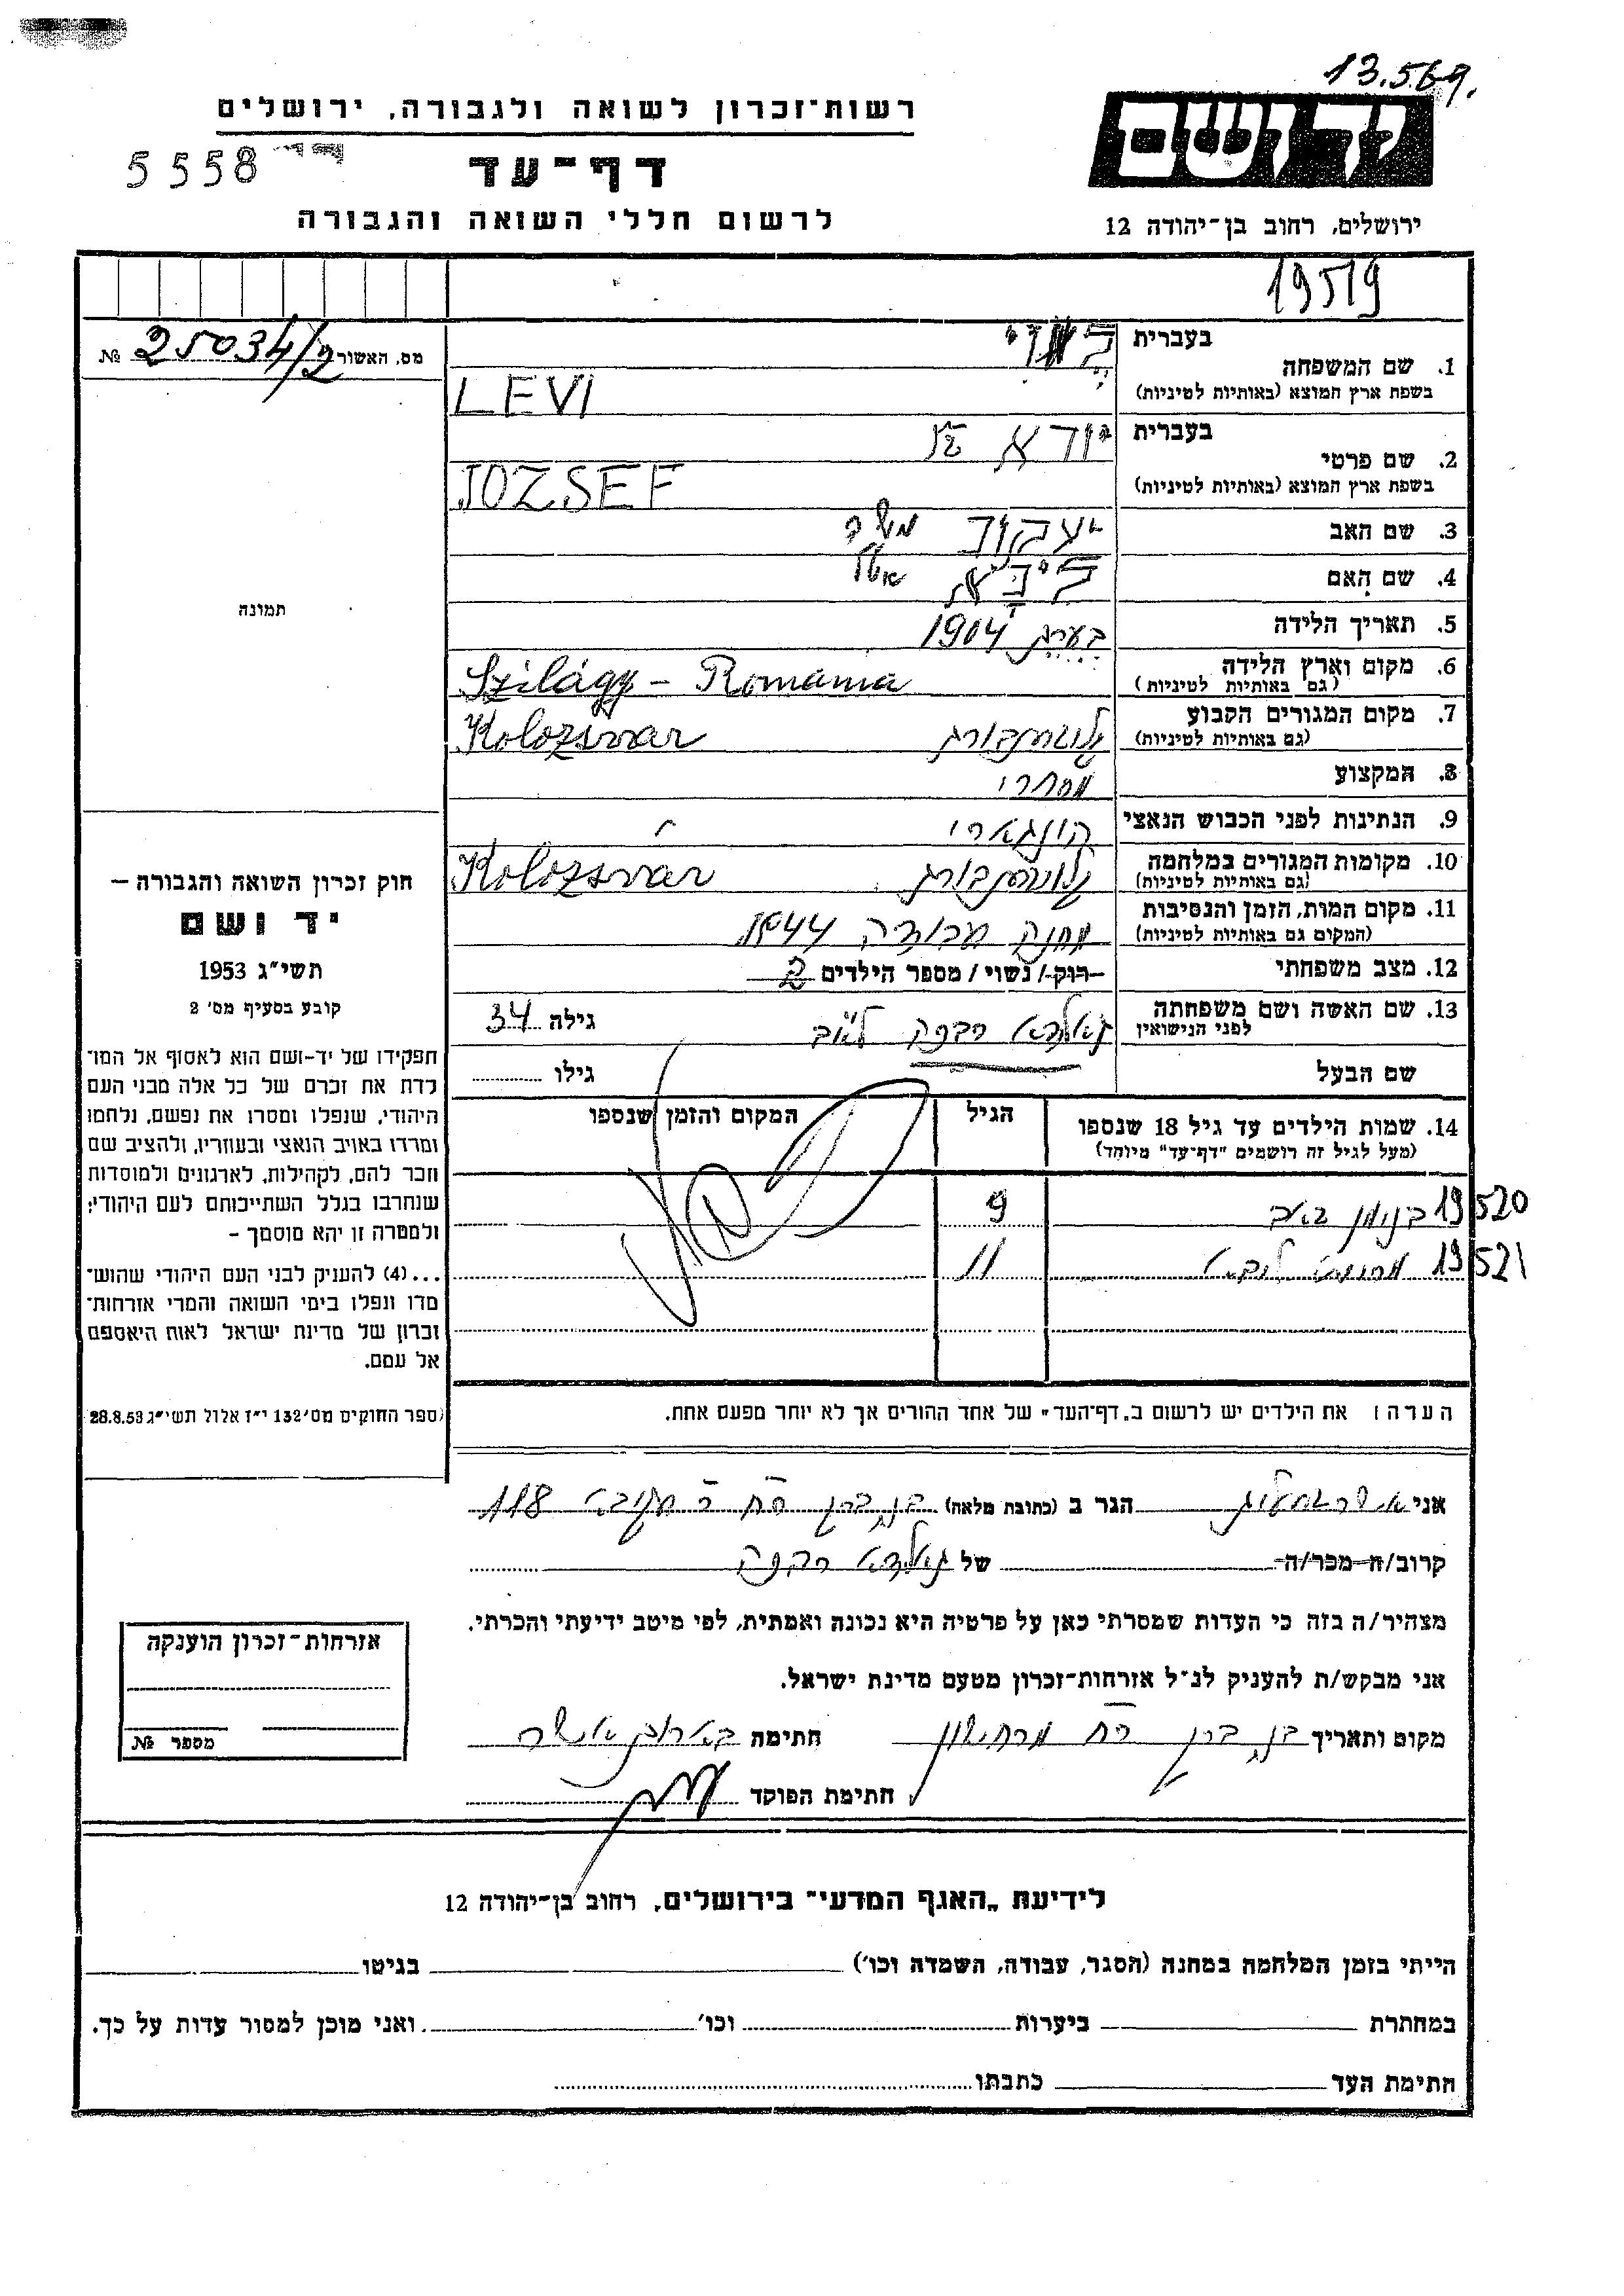 13.5.69.
רשות-זכרון לשואה ולגבורה, ירושלים
יד ושם
5558
דף-עד
לרשום חללי השואה והגבורה
ירושלים, רחוב בן-יהודה 12
19519
מס. האשור 25034/2 №
בעברית
1. שם המשפחה
בשפת ארץ המוצא (באותיות לטיניות)
LEVI
בעברית
2. שם פרטי
בשפת ארץ המוצא (באותיות לטיניות)
JOZSEF
3. שם האב יעקוב משה
4. שם האם
5. תאריך הלידה בערך 1904
6. מקום וארץ הלידה
(גם באותיות לטיניות)
Szilágy - Romania
7. מקום המגורים הקבוע
(גם באותיות לטיניות)
Kolozsvar
8. המקצוע מסחרי
9. הנתינות לפני הכבוש הנאצי
10. מקומות המגורים במלחמה
(גם באותיות לטיניות)
Kolozsvár
11. מקום המות, הזמן והנסיבות
(המקום גם באותיות לטיניות)
מחנה עבודה 1944
12. מצב משפחתי
רוק / נשוי / מספר הילדים 2
13. שם האשה ושם משפחתה
לפני הנישואין
רבקה גילה 34
שם הבעל גילו
14. שמות הילדים עד גיל 18 שנספו
(מעל לגיל זה רושמים "דף-עד" מיוחד)
הגיל
המקום והזמן שנספו
19520 9
19521 11
הערה: את הילדים יש לרשום ב"דף-העד" של אחד ההורים אך לא יותר מפעם אחת.
תמונה
חוק זכרון השואה והגבורה –
יד ושם
תשי"ג 1953
קובע בסעיף מס' 2
תפקידו של יד-ושם הוא לאסוף אל המו-
לדת את זכרם של כל אלה מבני העם
היהודי, שנפלו ומסרו את נפשם, נלחמו
ומרדו באויב הנאצי ובעוזריו, ולהציב שם
וזכר להם, לקהילות, לארגונים ולמוסדות
שנחרבו בגלל השתייכותם לעם היהודי;
ולמטרה זו יהא מוסמך –
... (4) להעניק לבני העם היהודי שהוש-
מדו ונפלו בימי השואה והמרי אזרחות-
זכרון של מדינת ישראל לאות היאספם
אל עמם.
(ספר החוקים מס' 132 י"ז אלול תשי"ג 28.8.53)
אני הגר ב (כתובת מלאה) בני ברק רח ר עקיבא 118
קרוב/ה מכר/ה של רבקה
מצהיר/ה בזה כי העדות שמסרתי כאן על פרטיה היא נכונה ואמתית, לפי מיטב ידיעתי והכרתי.
אני מבקש/ת להעניק לנ"ל אזרחות-זכרון מטעם מדינת ישראל.
מקום ותאריך בני ברק חתימה
חתימת הפוקד
אזרחות-זכרון הוענקה
מספר №
לידיעת "האגף המדעי" בירושלים, רחוב בן-יהודה 12
הייתי בזמן המלחמה במחנה (הסגר, עבודה, השמדה וכו') בגיטו
במחתרת ביערות וכו' ואני מוכן למסור עדות על כך.
חתימת העד כתבתו